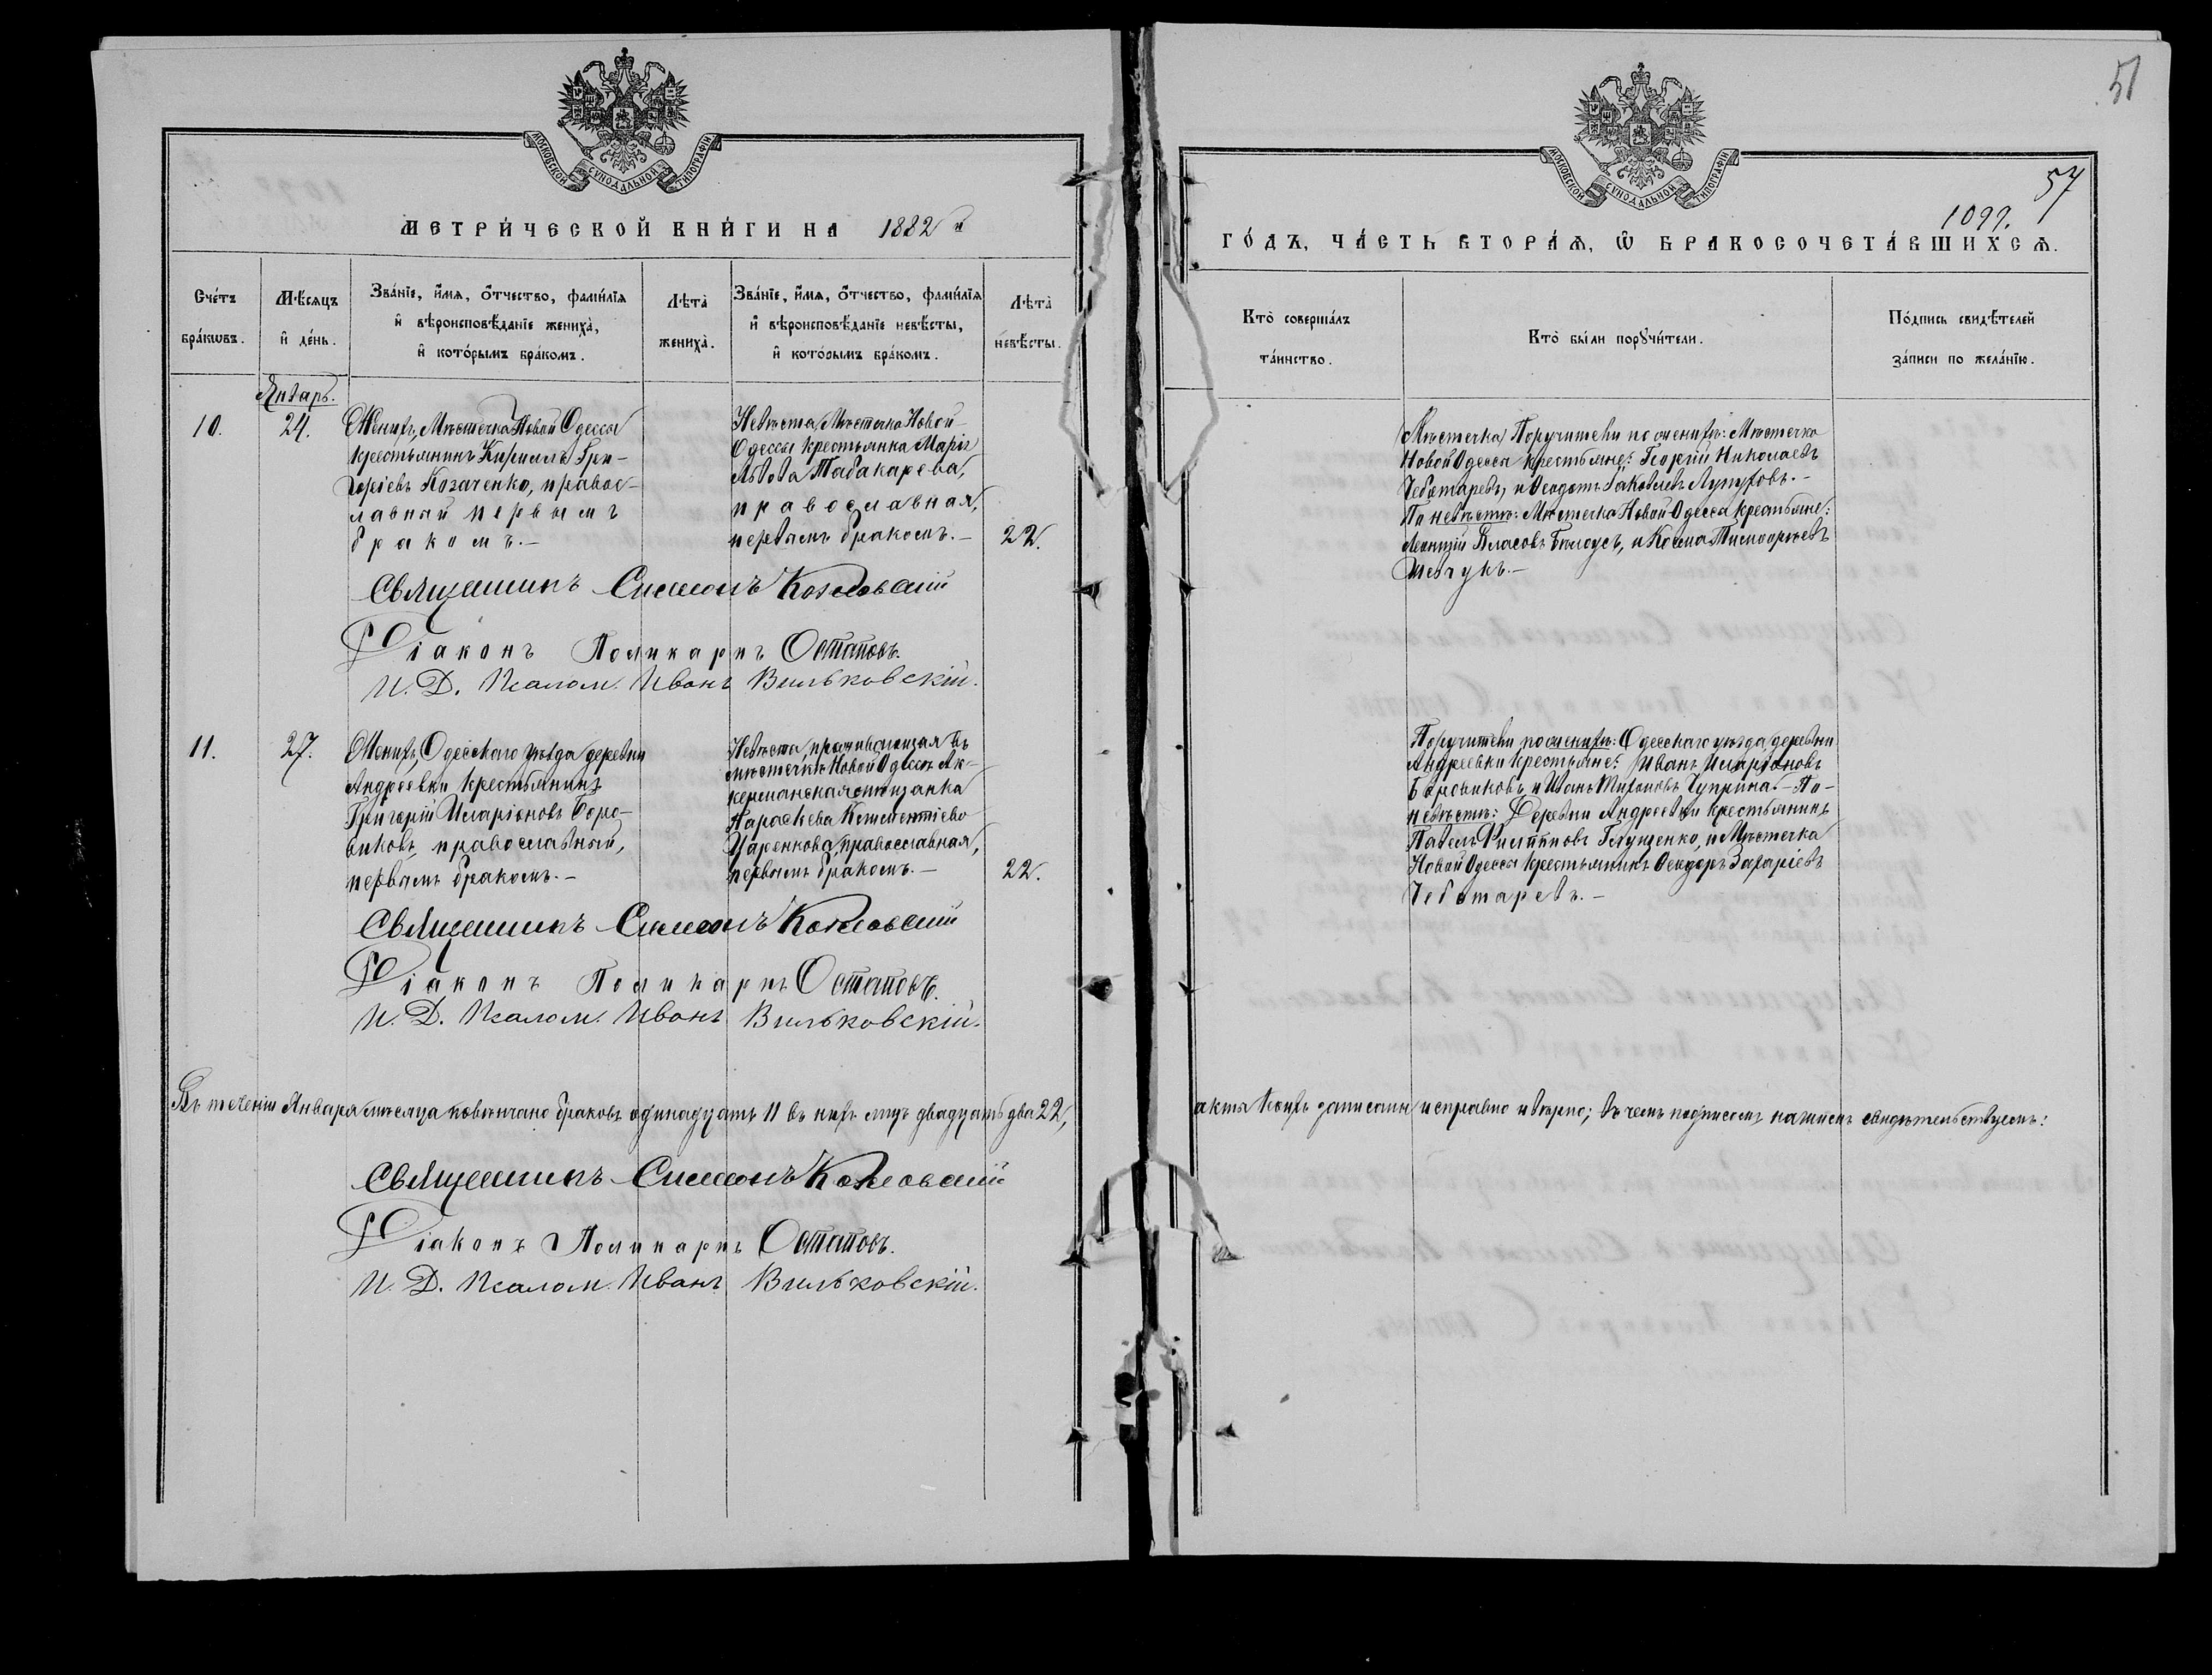 51
57
1099.
МОСКОВСКОЙ СѴНОДАЛЬНОЙ ТИПОГРАФІИ
МЕТРИ́ЧЕСКОЙ КНИ́ГИ НА 1882й
Сче́тъ бра́кωвъ.
Мѣ́сяцъ и҆ де́нь.
Зва́нїе, и҆́мя, ѻ҆́тчество, фами́лїя
и҆ вѣроисповѣ́данїе жениха̀,
и҆ кото́рымъ бра́комъ.
Лѣта̀ жениха̀.
Зва́нїе, и҆́мя, ѻ҆́тчество, фами́лїя
и҆ вѣроисповѣ́данїе невѣ́сты,
и҆ кото́рымъ бра́комъ.
Лѣта̀ невѣ́сты.
Январь.
10.
24.
Женихъ, Мѣстечка Новой Одессы
крестьянинъ Кириллъ Гри-
горіевъ Козаченко, правос-
лавный первымъ
бракомъ.-
Невѣста Мѣстечка Новой
Одессы крестьянка Марія
Львова Табакарева,
православная,
первымъ бракомъ.-
22.
Священникъ Симеонъ Козловскій
Діаконъ Поликарпъ Остаповъ.
И. Д. Псалом. Иванъ Вильковскій.
11.
27.
Женихъ, Одесскаго уѣзда деревни
Андреевки крестьянинъ
Григорій Иларіоновъ Боро-
виковъ, православный,
первымъ бракомъ.-
Невѣста, проживающая въ
мѣстечкѣ Новой Одессѣ Ак-
керманская мѣщанка
Параскева Климентіева
Царенкова, православная,
первымъ бракомъ.-
22.
Священникъ Симеонъ Козловскій
Діаконъ Поликарпъ Остаповъ.
И. Д. Псалом. Иванъ Вильковскій.
Въ теченіи Января мѣсяца повѣнчано браковъ одинадцать 11 въ нихъ лицъ двадцать два 22,
Священникъ Симеонъ Козловскій
Діаконъ Поликарпъ Остаповъ.
И. Д. Псалом. Иванъ Вильковскій.
МОСКОВСКОЙ СѴНОДАЛЬНОЙ ТИПОГРАФІИ
ГО́ДЪ, ЧА́СТЬ ВТОРА́Я, Ѡ҆ БРАКОСОЧЕТА́ВШИХСЯ.
Кто̀ соверша́лъ
та́инство.
Кто̀ бы́ли порꙋчи́тели.
По́дпись свидѣ́телей
за́писи по жела́нїю.
Мѣстечка Поручители по женихѣ: Мѣстечка
Новой Одесса крестьяне: Георгій Николаевъ
Чеботаревъ, и Ѳеодотъ Іаковлевъ
По невѣстѣ: Мѣстечка Новой Одесса крестьяне:
Леонтій Власовъ Бѣлоусъ, и Косма
Шевчукъ.-
Поручители по женихѣ: Одесскаго уѣзда деревни
Андреевки крестьяне: Иванъ Иларіоновъ
Боровиковъ, и Иванъ Тихоновъ Чуприна.- По
невѣстѣ: Деревни Андреевки крестьянинъ
Павелъ Филипповъ Глущенко, и Мѣстечка
Новой Одессы крестьянинъ Ѳеодоръ Захаріевъ
Чеботаревъ.-
акты коихъ записаны исправно и вѣрно; въ чемъ подписомъ нашимъ свидѣтельствуемъ: